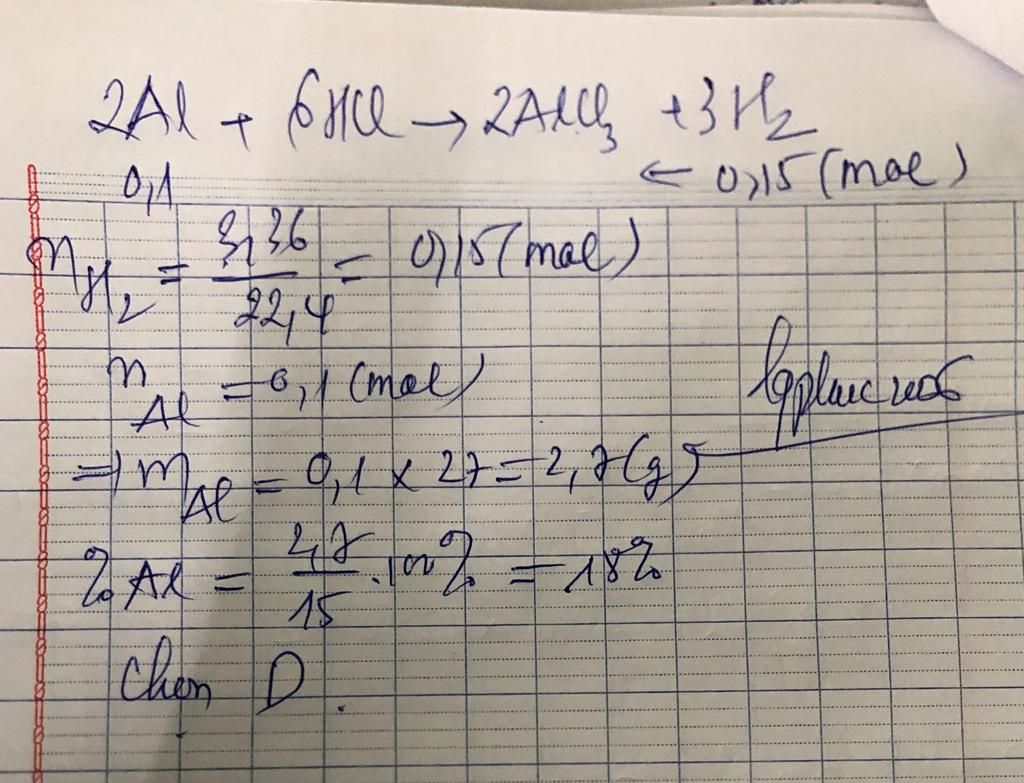 2Al + 6HCl → 2AlCl₃ + 3H₂
0,1 ← 0,15 (mol)
n H₂ = 3,36 / 22,4 = 0,15 (mol)
n Al = 0,1 (mol)
⇒ m Al = 0,1 x 27 = 2,7 (g)
% Al = 2,7 / 15 . 100% = 18%
Chọn D.